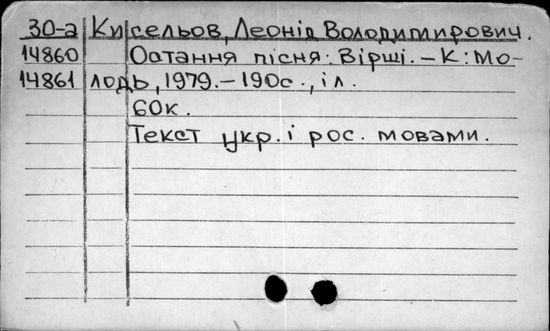 30-а Кисельов, Леонід Володимирович.
14860 Остання пісня: Вірші. – К: Мо-
14861 лодь, 1979. – 190с., іл.
60к.
Текст укр. і рос. мовами.